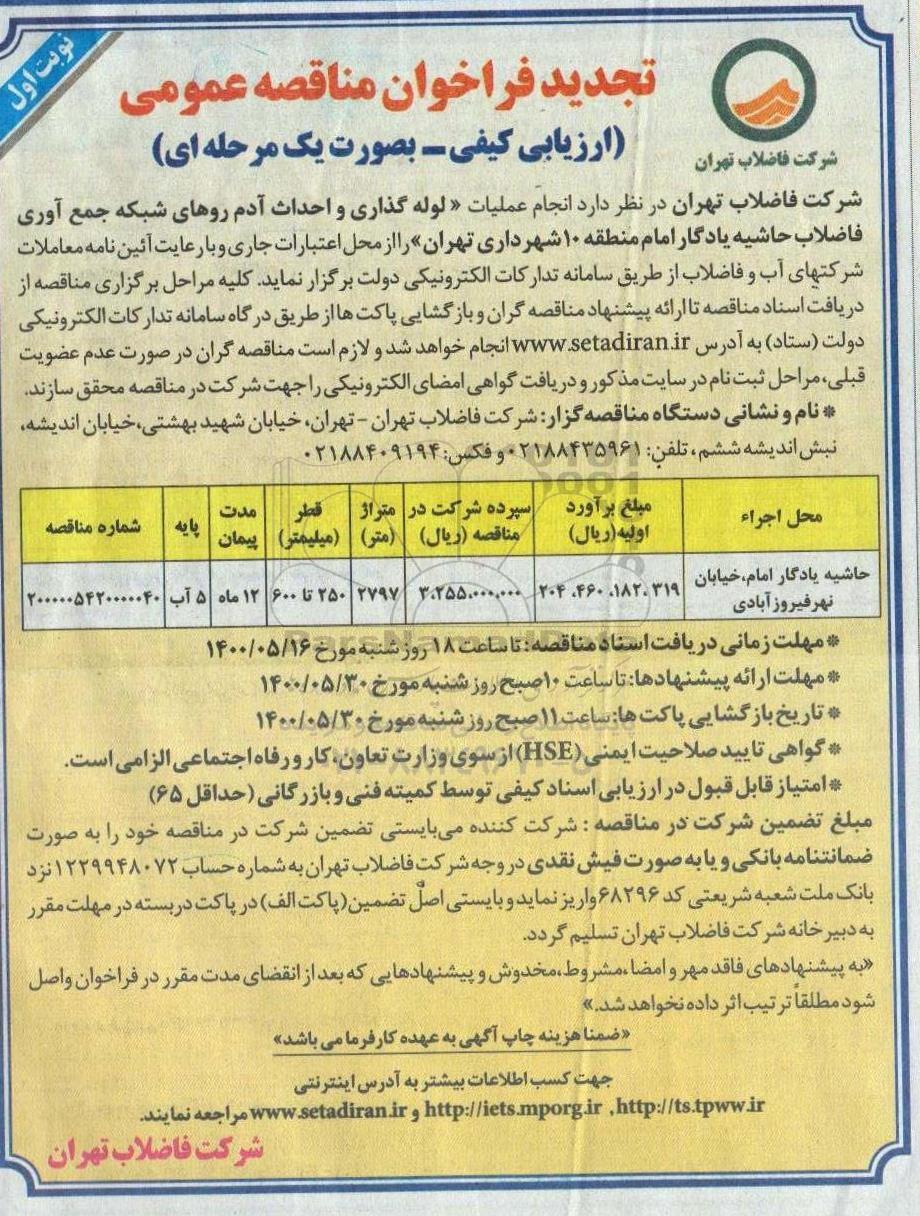 نوبت اول
تجدید فراخوان مناقصه عمومی
(ارزیابی کیفی - بصورت یک مرحله ای)
شرکت فاضلاب تهران
شرکت فاضلاب تهران در نظر دارد انجام عملیات « لوله گذاری و احداث آدم روهای شبکه جمع آوری
فاضلاب حاشیه یادگار امام منطقه ۱۰ شهرداری تهران» را از محل اعتبارات جاری و با رعایت آئین نامه معاملات
شرکتهای آب و فاضلاب از طریق سامانه تدارکات الکترونیکی دولت برگزار نماید. کلیه مراحل برگزاری مناقصه از
دریافت اسناد مناقصه تا ارائه پیشنهاد مناقصه گران و بازگشایی پاکت ها از طریق درگاه سامانه تدارکات الکترونیکی
دولت (ستاد) به آدرس www.setadiran.ir انجام خواهد شد و لازم است مناقصه گران در صورت عدم عضویت
قبلی، مراحل ثبت نام در سایت مذکور و دریافت گواهی امضای الکترونیکی را جهت شرکت در مناقصه محقق سازند.
* نام و نشانی دستگاه مناقصه گزار: شرکت فاضلاب تهران - تهران، خیابان شهید بهشتی، خیابان اندیشه،
نبش اندیشه ششم، تلفن: ۰۲۱۸۸۴۳۵۹۶۱ و فکس: ۰۲۱۸۸۴۰۹۱۹۴
محل اجراء | مبلغ برآورد اولیه(ریال) | سپرده شرکت در مناقصه (ریال) | متراژ (متر) | قطر (میلیمتر) | مدت پیمان | پایه | شماره مناقصه
حاشیه یادگار امام، خیابان نهرفیروزآبادی | ۲۰۴.۴۶۰.۱۸۲.۳۱۹ | ۳.۲۵۵.۰۰۰.۰۰۰ | ۲۷۹۷ | ۲۵۰ تا ۶۰۰ | ۱۲ ماه | ۵ آب | ۲۰۰۰۰۰۵۴۲۰۰۰۰۰۴۰
* مهلت زمانی دریافت اسناد مناقصه: تا ساعت ۱۸ روز شنبه مورخ ۱۴۰۰/۰۵/۱۶
* مهلت ارائه پیشنهادها: تا ساعت ۱۰ صبح روز شنبه مورخ ۱۴۰۰/۰۵/۳۰
* تاریخ بازگشایی پاکت ها: ساعت ۱۱ صبح روز شنبه مورخ ۱۴۰۰/۰۵/۳۰
* گواهی تایید صلاحیت ایمنی (HSE) از سوی وزارت تعاون، کار و رفاه اجتماعی الزامی است.
* امتیاز قابل قبول در ارزیابی اسناد کیفی توسط کمیته فنی و بازرگانی (حداقل ۶۵)
مبلغ تضمین شرکت در مناقصه : شرکت کننده می‌بایستی تضمین شرکت در مناقصه خود را به صورت
ضمانتنامه بانکی و یا به صورت فیش نقدی در وجه شرکت فاضلاب تهران به شماره حساب ۱۲۲۹۹۴۸۰۷۲ نزد
بانک ملت شعبه شریعتی کد ۶۸۲۹۶ واریز نماید و بایستی اصل تضمین (پاکت الف) در پاکت دربسته در مهلت مقرر
به دبیرخانه شرکت فاضلاب تهران تسلیم گردد.
«به پیشنهادهای فاقد مهر و امضا، مشروط، مخدوش و پیشنهادهایی که بعد از انقضای مدت مقرر در فراخوان واصل
شود مطلقاً ترتیب اثر داده نخواهد شد.»
«ضمنا هزینه چاپ آگهی به عهده کارفرما می باشد»
جهت کسب اطلاعات بیشتر به آدرس اینترنتی
http://ts.tpww.ir ، http://iets.mporg.ir و www.setadiran.ir مراجعه نمایند.
شرکت فاضلاب تهران